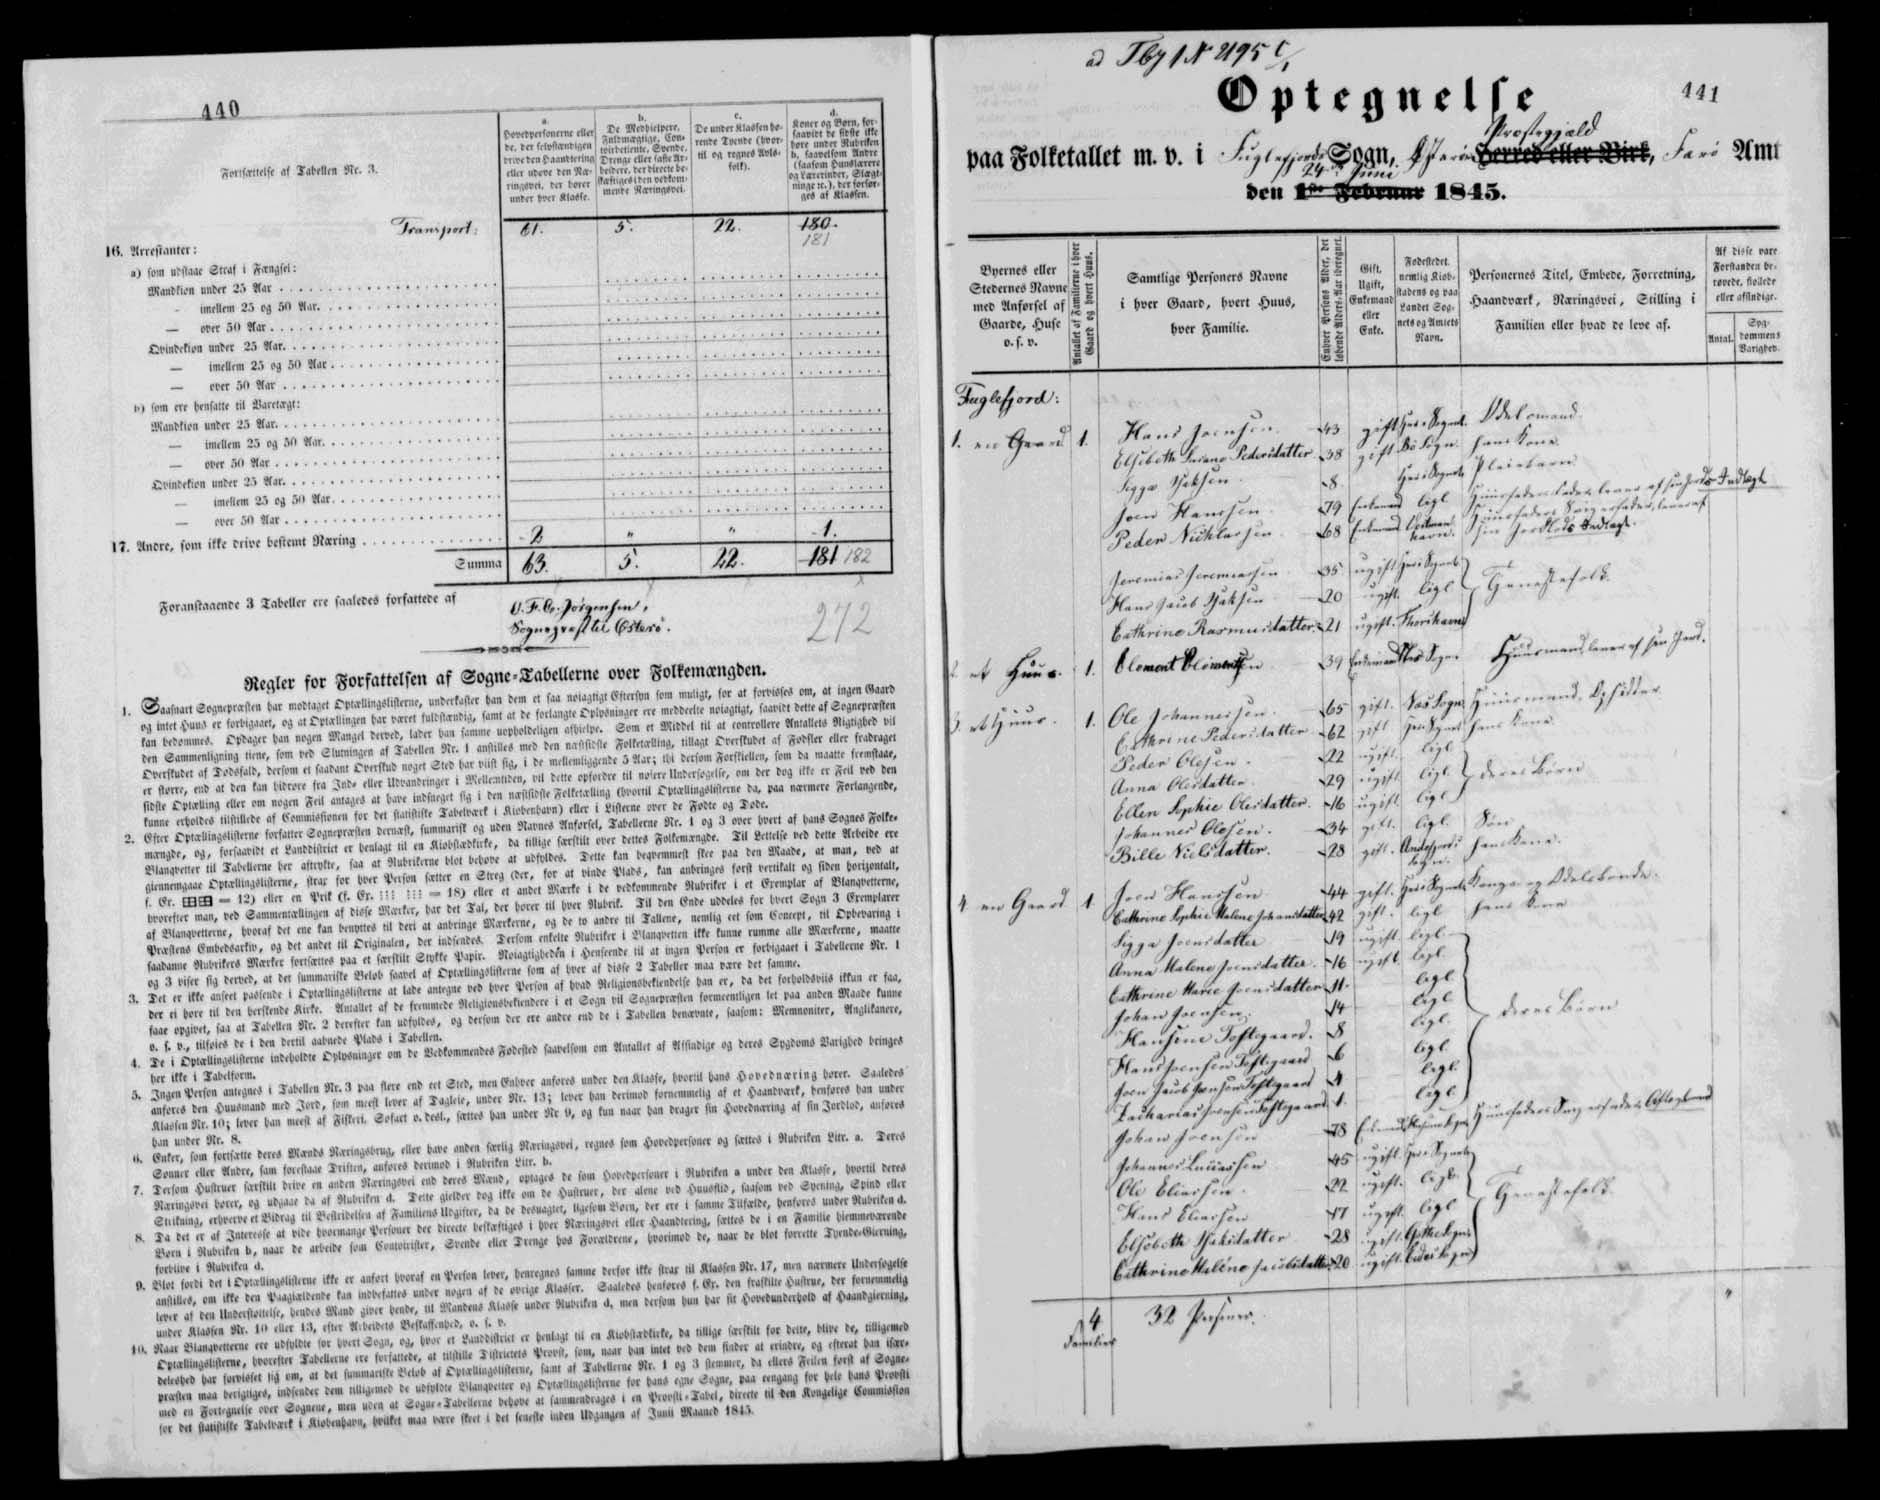 440
Fortsættelse af Tabellen Nr. 3.
a. Hovedpersonerne eller de, der selvstændigen drive den Haandtering eller udøve den Næringsvei, der hører under hver Klasse.
b. De Medhielpere, Fuldmægtige, Contoirbetiente, Svende, Drenge eller faste Arbeidere, der directe beskæftiges i den vedkommende Næringsvei.
c. De under Klassen hørende Tyende (hvortil og regnes Avlsfolk).
d. Koner og Børn, forsaavidt de sidste ikke høre under Rubriken b, saavelsom Andre (saasom Huuslærere og Lærerinder, Slægtninge ꝛc.), der forsørges af Klassen.
Transport: 61. 5. 22. 180. 181
16. Arrestanter:
a) som udstaae Straf i Fængsel:
Mandkiøn under 25 Aar
- imellem 25 og 50 Aar.
— over 50 Aar
Qvindekiøn under 25 Aar.
— imellem 25 og 50 Aar
— over 50 Aar
b) som ere hensatte til Varetægt:
Mandkiøn under 25 Aar.
— imellem 25 og 50 Aar.
— over 50 Aar
Qvindekiøn under 25 Aar.
— imellem 25 og 50 Aar.
— over 50 Aar
17. Andre, som ikke drive bestemt Næring 2 " " 1.
Summa 63. 5. 22. 181 182
Foranstaaende 3 Tabeller ere saaledes forfattede af
Jørgensen,
Sognepræst til Østerø.
272
Regler for Forfattelsen af Sogne-Tabellerne over Folkemængden.
1. Saasnart Sognepræsten har modtaget Optællingslisterne, underkaster han dem et saa nøiagtigt Eftersyn som muligt, for at forvisses om, at ingen Gaard
og intet Huus er forbigaaet, og at Optællingen har været fuldstændig, samt at de forlangte Oplysninger ere meddeelte nøiagtigt, saavidt dette af Sognepræsten
kan bedømmes. Opdager han nogen Mangel derved, lader han samme uopholdeligen afhielpe. Som et Middel til at controllere Antallets Rigtighed vil
den Sammenligning tiene, som ved Slutningen af Tabellen Nr. 1 anstilles med den næstsidste Folketælling, tillagt Overskudet af Fødsler eller fradraget
Overskudet af Dødsfald, dersom et saadant Overskud noget Sted har viist sig, i de mellemliggende 5 Aar; thi dersom Forskiellen, som da maatte fremstaae,
er større, end at den kan hidrøre fra Ind- eller Udvandringer i Mellemtiden, vil dette opfordre til nøiere Undersøgelse, om der dog ikke er Feil ved den
sidste Optælling eller om nogen Feil antages at have indsneget sig i den næstsidste Folketælling (hvortil Optællingslisterne da, paa nærmere Forlangende,
kunne erholdes tilstillede af Commissionen for det statistiske Tabelværk i Kiøbenhavn) eller i Listerne over de Fødte og Døde.
2. Efter Optællingslisterne forfatter Sognepræsten dernæst, summarisk og uden Navnes Anførsel, Tabellerne Nr. 1 og 3 over hvert af hans Sognes Folke-
mængde, og, forsaavidt et Landdistrict er henlagt til en Kiøbstædkirke, da tillige særskilt over dettes Folkemængde. Til Lettelse ved dette Arbeide ere
Blanqvetter til Tabellerne her aftrykte, saa at Rubrikerne blot behøve at udfyldes. Dette kan beqvemmest skee paa den Maade, at man, ved at
giennemgaae Optællingslisterne, strax for hver Person sætter en Streg (der, for at vinde Plads, kan anbringes først vertikalt og siden horizontalt,
f. Ex. = 12) eller en Prik (f. Ex. = 18) eller et andet Mærke i de vedkommende Rubriker i et Exemplar af Blanqvetterne,
hvorefter man, ved Sammentællingen af disse Mærker, har det Tal, der hører til hver Rubrik. Til den Ende uddeles for hvert Sogn 3 Exemplarer
af Blanqvetterne, hvoraf det ene kan benyttes til deri at anbringe Mærkerne, og de to andre til Tallene, nemlig eet som Concept, til Opbevaring i
Præstens Embedsarkiv, og det andet til Originalen, der indsendes. Dersom enkelte Rubriker i Blanqvetten ikke kunne rumme alle Mærkerne, maatte
saadanne Rubrikers Mærker fortsættes paa et særskilt Stykke Papir. Nøiagtigheden i Henseende til at ingen Person er forbigaaet i Tabellerne Nr. 1
og 3 viser sig derved, at det summariske Beløb saavel af Optællingslisterne som af hver af disse 2 Tabeller maa være det samme.
3. Det er ikke anseet passende i Optællingslisterne at lade antegne ved hver Person af hvad Religionsbekiendelse han er, da det forholdsviis ikkun er faa,
der ei høre til den herskende Kirke. Antallet af de fremmede Religionsbekiendere i et Sogn vil Sognepræsten formeentligen let paa anden Maade kunne
faae opgivet, saa at Tabellen Nr. 2 derefter kan udfyldes, og dersom der ere andre end de i Tabellen benævnte, saasom: Memnoniter, Anglikanere,
o. s. v., tilføies de i den dertil aabnede Plads i Tabellen.
4. De i Optællingslisterne indeholdte Oplysninger om de Vedkommendes Fødested saavelsom om Antallet af Afsindige og deres Sygdoms Varighed bringes
her ikke i Tabelform.
5. Ingen Person antegnes i Tabellen Nr. 3 paa flere end eet Sted, men Enhver anføres under den Klasse, hvortil hans Hovednæring hører. Saaledes
anføres den Huusmand med Jord, som meest lever af Dagleie, under Nr. 13; lever han derimod fornemmelig af et Haandværk, henføres han under
Klassen Nr. 10; lever han meest af Fiskeri, Søfart o. desl., sættes han under Nr. 9, og kun naar han drager sin Hovednæring af sin Jordlod, anføres
han under Nr. 8.
6. Enker, som fortsætte deres Mænds Næringsbrug, eller have anden særlig Næringsvei, regnes som Hovedpersoner og sættes i Rubriken Litr. a. Deres
Sønner eller Andre, som forestaae Driften, anføres derimod i Rubriken Litr. b.
7. Dersom Hustruer særskilt drive en anden Næringsvei end deres Mænd, optages de som Hovedpersoner i Rubriken a under den Klasse, hvortil deres
Næringsvei hører, og udgaae da af Rubriken d. Dette gielder dog ikke om de Hustruer, der alene ved Huusflid, saasom ved Syening, Spind eller
Strikning, erhverve et Bidrag til Bestridelsen af Familiens Udgifter, da de desuagtet, ligesom Børn, der ere i samme Tilfælde, henføres under Rubriken d.
8. Da det er af Interesse at vide hvormange Personer der directe beskæftiges i hver Næringsvei eller Haandtering, sættes de i en Familie hiemmeværende
Børn i Rubriken b, naar de arbeide som Contoirister, Svende eller Drenge hos Forældrene, hvorimod de, naar de blot forrette Tyende-Gierning,
forblive i Rubriken d.
9. Blot fordi det i Optællingslisterne ikke er anført hvoraf en Person lever, henregnes samme derfor ikke strax til Klassen Nr. 17, men nærmere Undersøgelse
anstilles, om ikke den Paagiældende kan indbefattes under nogen af de øvrige Klasser. Saaledes henføres f. Ex. den fraskilte Hustrue, der fornemmelig
lever af den Understøttelse, hendes Mand giver hende, til Mandens Klasse under Rubriken d, men dersom hun har sit Hovedunderhold af Haandgierning,
under Klassen Nr. 10 eller 13, efter Arbeidets Beskaffenhed, o. s. v.
10. Naar Blanqvetterne ere udfyldte for hvert Sogn, og, hvor et Landdistrict er henlagt til en Kiøbstædkirke, da tillige særskilt for dette, blive de, tilligemed
Optællingslisterne, hvorefter Tabellerne ere forfattede, at tilstille Districtets Provst, som, naar han intet ved dem finder at erindre, og efterat han især-
deleshed har forvisset sig om, at det summariske Beløb af Optællingslisterne, samt af Tabellerne Nr. 1 og 3 stemmer, da ellers Feilen først af Sogne-
præsten maa berigtiges, indsender dem tilligemed de udfyldte Blanqvetter og Optællingslisterne for hans egne Sogne, paa eengang for hele hans Provsti
med en Fortegnelse over Sognene, men uden at Sogne-Tabellerne behøve at sammendrages i en Provsti-Tabel, directe til den Kongelige Commission
for det statistiske Tabelværk i Kiøbenhavn, hvilket maa være skeet i det seneste inden Udgangen af Junii Maaned 1845.
ad Tby 1 № 2195
441
Optegnelse
Præstegjæld
paa Folketallet m. v. i Fuglefjords Sogn, Østerøe Herred eller Birk, Farø Amt
24 Juni
den 1ste Februar 1845.
Byernes eller Stedernes Navne med Anførsel af Gaarde, Huse o. s. v.
Antallet af Familierne i hver Gaard og hvert Huus.
Samtlige Personers Navne i hver Gaard, hvert Huus, hver Familie.
Enhver Persons Alder, det løbende Alders-Aar iberegnet.
Gift, Ugift, Enkemand eller Enke.
Fødestedet, nemlig Kiøbstadens og paa Landet Sognets og Amtets Navn.
Personernes Titel, Embede, Forretning, Haandværk, Næringsvei, Stilling i Familien eller hvad de leve af.
Af disse vare Forstanden berøvede, fiollede eller afsindige.
Antal. Sygdommens Varighed.
Fuglefjord:
1. en Gaard 1. Hans Joensen 43 gift Her i Sognet Odelsmand.
Elsebeth Susanne Pedersdatter 38 gift Sogn hans Kone
Sigga Isaksen 8 Her i Sognet Pleiebarn
Joen Hansen 79 Enkemand ligl. Huusfaders Fader, lever af sin Jords Indtægt
Peder Nicklassen 68 Enkemand Vestmanhavn Huusfaders Svigerfader, lever af
sin Jordlods Indtægt.
Jeremias Jeremiassen 35 ugift Her i Sognet
Hans Jacob Isaksen 20 ugift. ligl Tjenestefolk.
Cathrine Rasmusdatter 21 ugift. Thorshavn
2. et Huus. 1. Clement Clementsen 39 Enkemand Sogn Huusmand, lever af sin Jord.
3. et Huus. 1. Ole Johannessen 65 gift. Næs Sogn Huusmand,
Cathrine Pedersdatter 62 gift Her i Sognet hans Kone
Peder Olesen. 22 ugift. ligl
Anna Olesdatter. 29 ugift ligl. deres Børn
Ellen Sophie Olesdatter. 16 ugift ligl
Johannes Olesen. 34 gift. ligl. Søn
Bille Nielsdatter. 28 gift. Andefjords Sogn. hans Kone.
4. en Gaard 1. Joen Hansen 44 gift. Her i Sognet Konge- og Odelsbonde.
Cathrine Sophie Malene Johansdatter 42 gift. ligl hans Kone
Sigga Joensdatter 19 ugift. ligl.
Anna Malene Joensdatter. 16 ugift. ligl.
Cathrine Marie Joensdatter 11. ligl.
Johan Joensen. 14 ligl
Hansine Toftegaard. 8 ligl. deres Børn
Hans Joensen Toftegaard 6 ligl.
Joen Jacob Joensen Toftegaard 4 ligl.
Zacharias Joensen Toftegaard 1. ligl.
Johan Joensen 78 Enkemand Huusfaders Svigerfader, Aftægtsmand
Johannes Lucassen 45 ugift. Her i Sognet
Ole Eliassen. 22 ugift. ligl.
Hans Eliassen 17 ugift. ligl Tjenestefolk.
Elsebeth Isaksdatter 28 ugift. Gøthe Sogn
Cathrine Malene Jacobsdatter 20 ugift. Eides Sogn
4 Familier 32 Personer. "